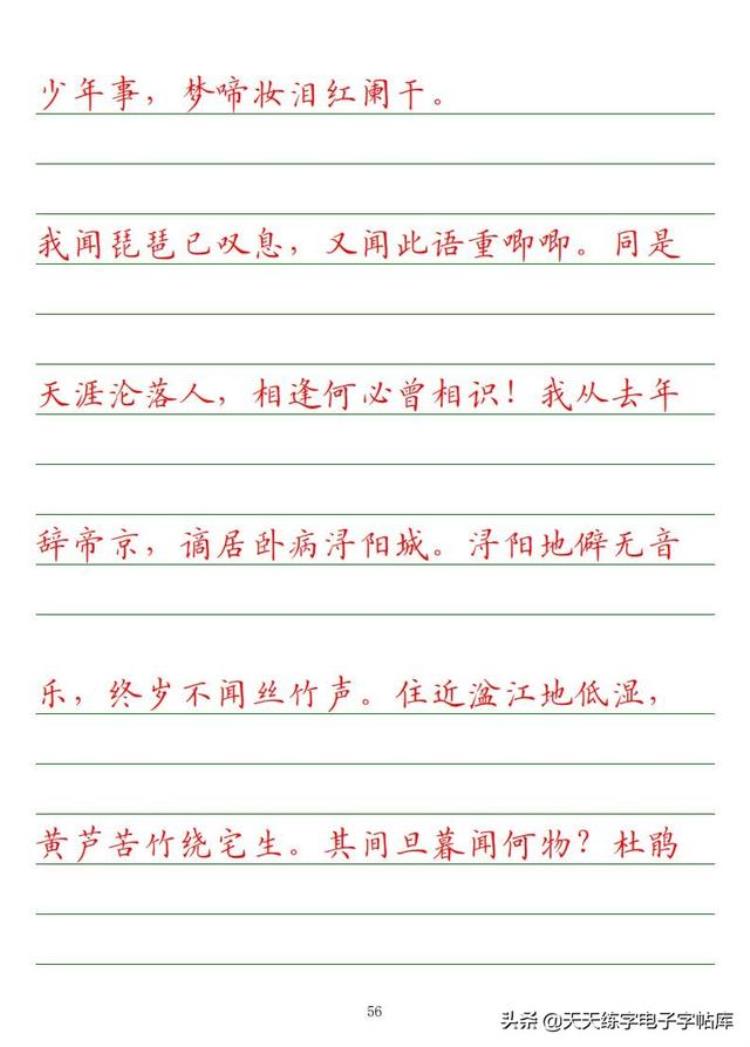 少年事，梦啼妆泪红阑干。
我闻琵琶已叹息，又闻此语重唧唧。同是
天涯沦落人，相逢何必曾相识！我从去年
辞帝京，谪居卧病浔阳城。浔阳地僻无音
乐，终岁不闻丝竹声。住近湓江地低湿，
黄芦苦竹绕宅生。其间旦暮闻何物？杜鹃
56
头条 @天天练字电子字帖库